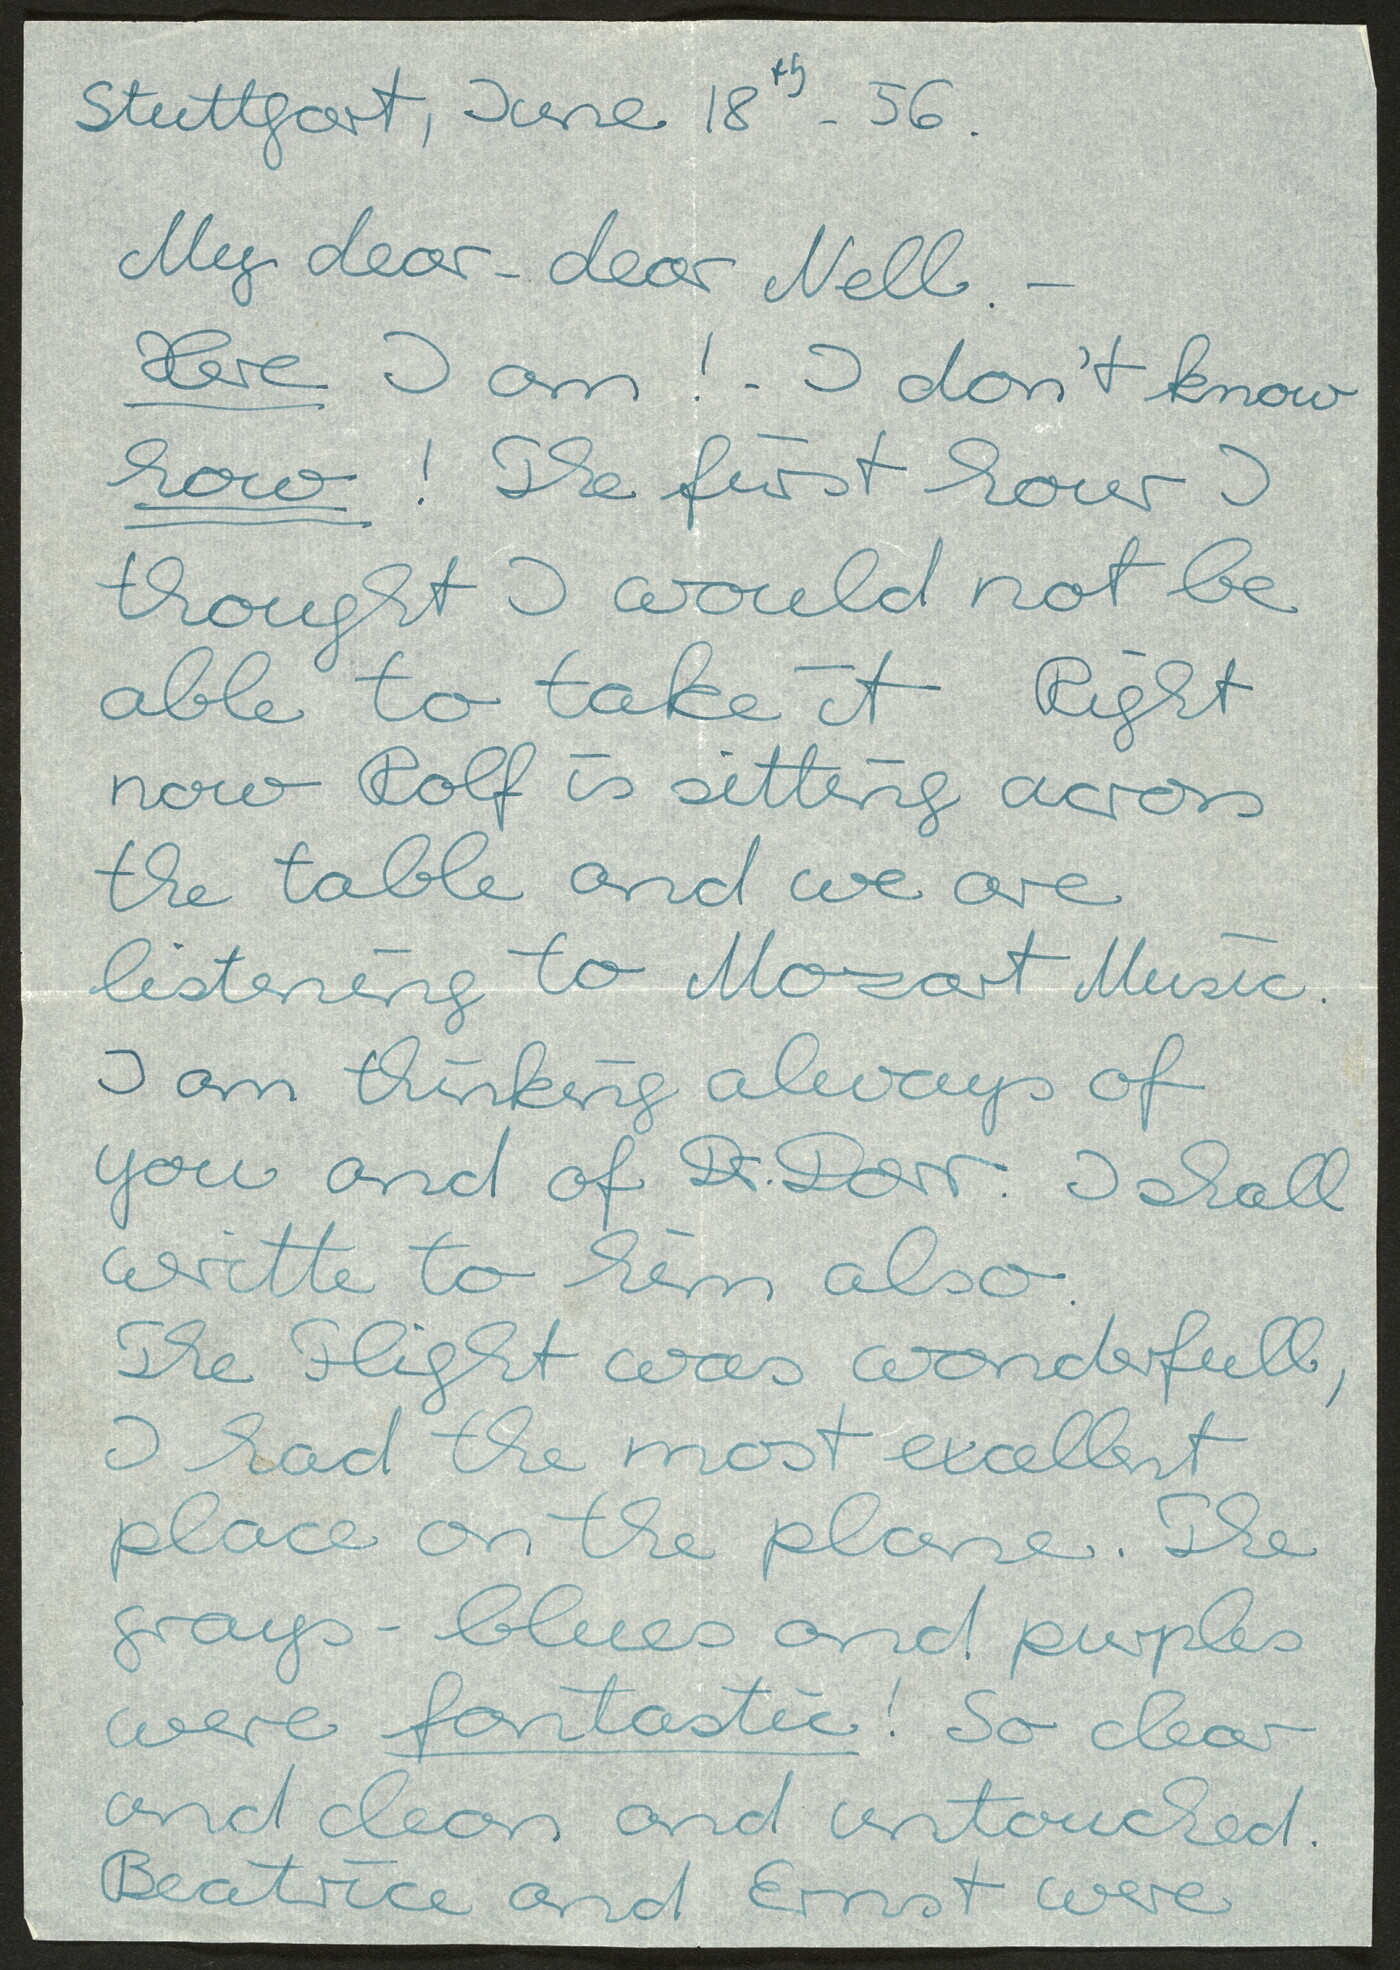 Stuttgart, June 18th - 56.
My dear - dear Nell. -
Here I am ! - I don't know
how ! The first hour I
thought I would not be
able to take it Right
now Rolf is sitting across
the table and we are
listening to Mozart Music.
I am thinking always of
you and of Dr. Dorr. I shall
writte to him also.
The Flight was wonderfull,
I had the most excellent
place on the plane. The
grays - blues and purples
were fantastic ! So clear
and clean and untouched.
Beatrice and Ernst were